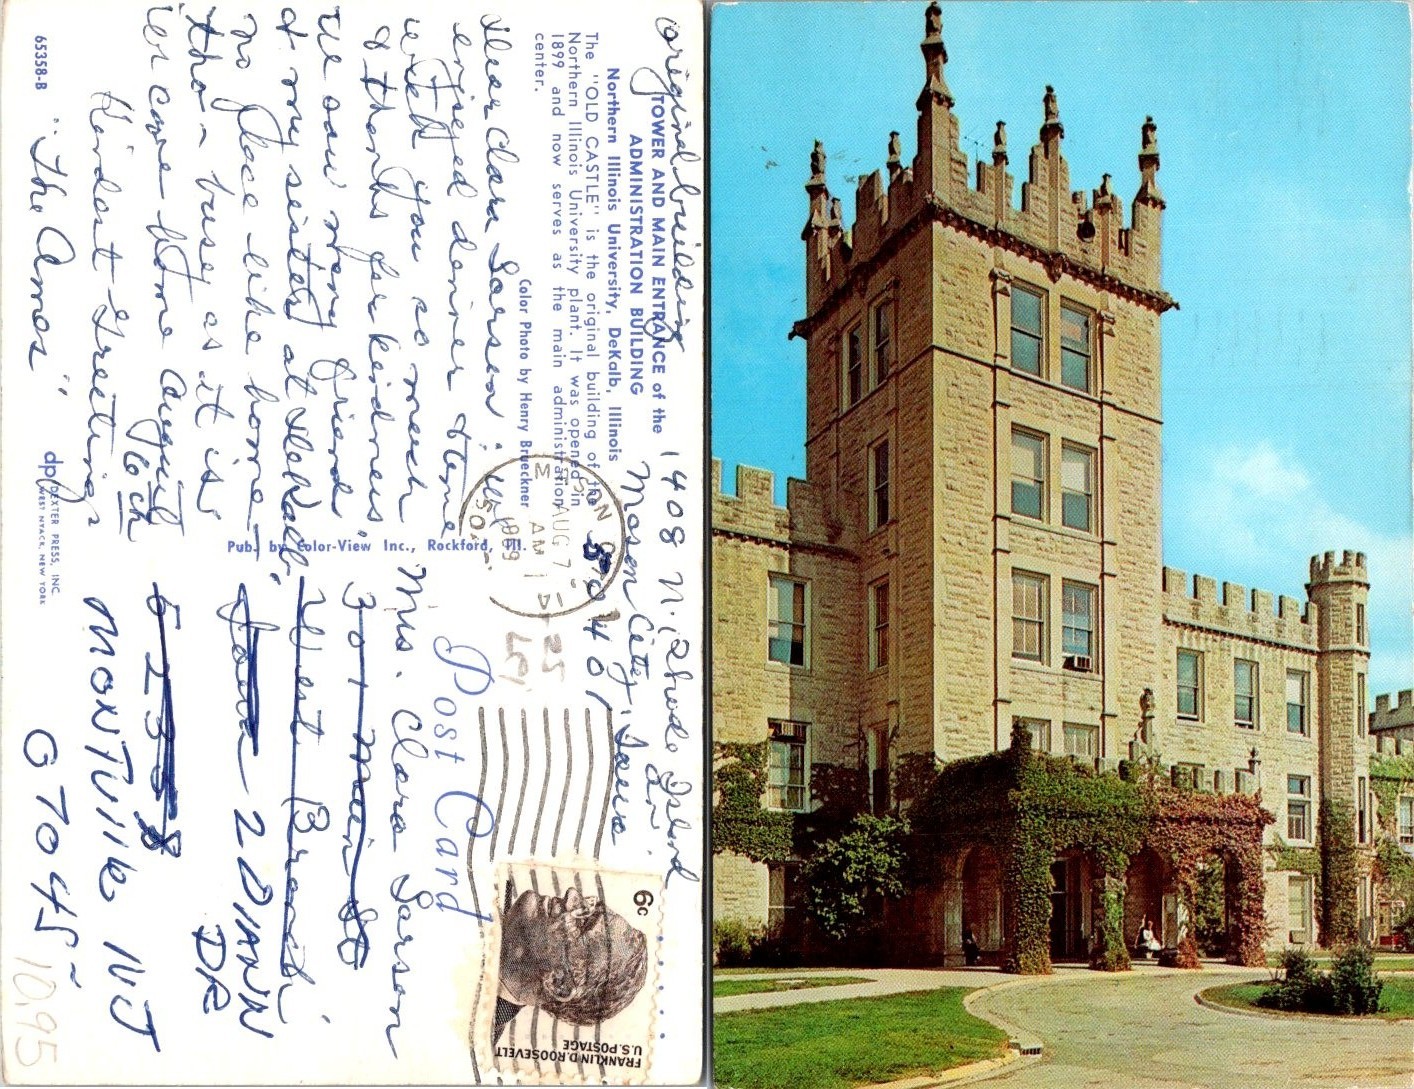 original building
TOWER AND MAIN ENTRANCE of the
ADMINISTRATION BUILDING
Northern Illinois University, DeKalb, Illinois
The "OLD CASTLE" is the original building of the
Northern Illinois University plant. It was opened in
1899 and now serves as the main administration
center.
Color Photo by Henry Brueckner
1408 N. Rhode Island
Mason City, Iowa
50401
Dear Clara Larson:
enjoyed dinner & time
with you so much
& thanks for kindness
We saw many friends
at my sisters at DeKalb,
no place like home –
tho – busy as it is,
Kindest Greetings
"The Ames"
65358-B
Pub. by Color-View Inc., Rockford, Ill.
dpi
DEXTER PRESS, INC.
WEST NYACK, NEW YORK
AUG 7
AM
1969
Post Card
Mrs. Clara Larson
301 Main St
West Branch,
Iowa
2 DIANN
DR
52358
MONTVILLE NJ
07045
10.95
6c
FRANKLIN D. ROOSEVELT
U.S. POSTAGE